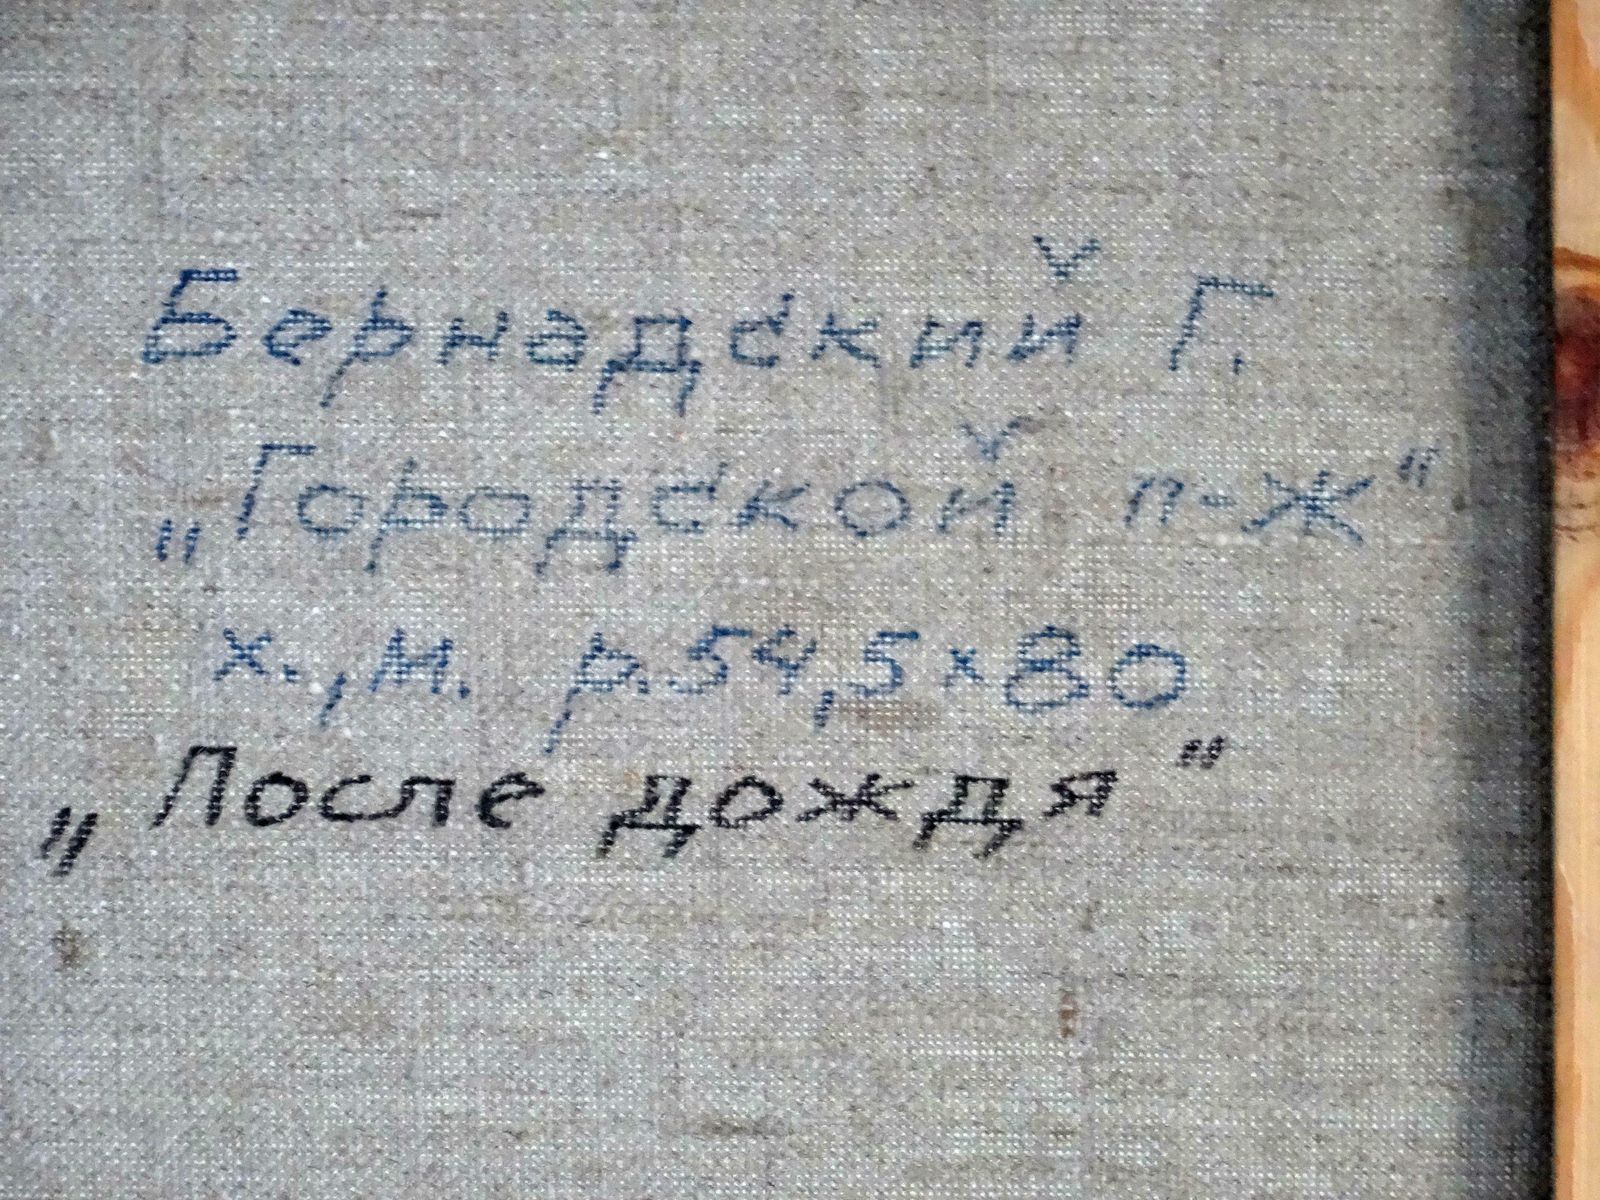 Бернадский Г.
„Городской п-ж"
х., м. р. 54,5×80
„После дождя"